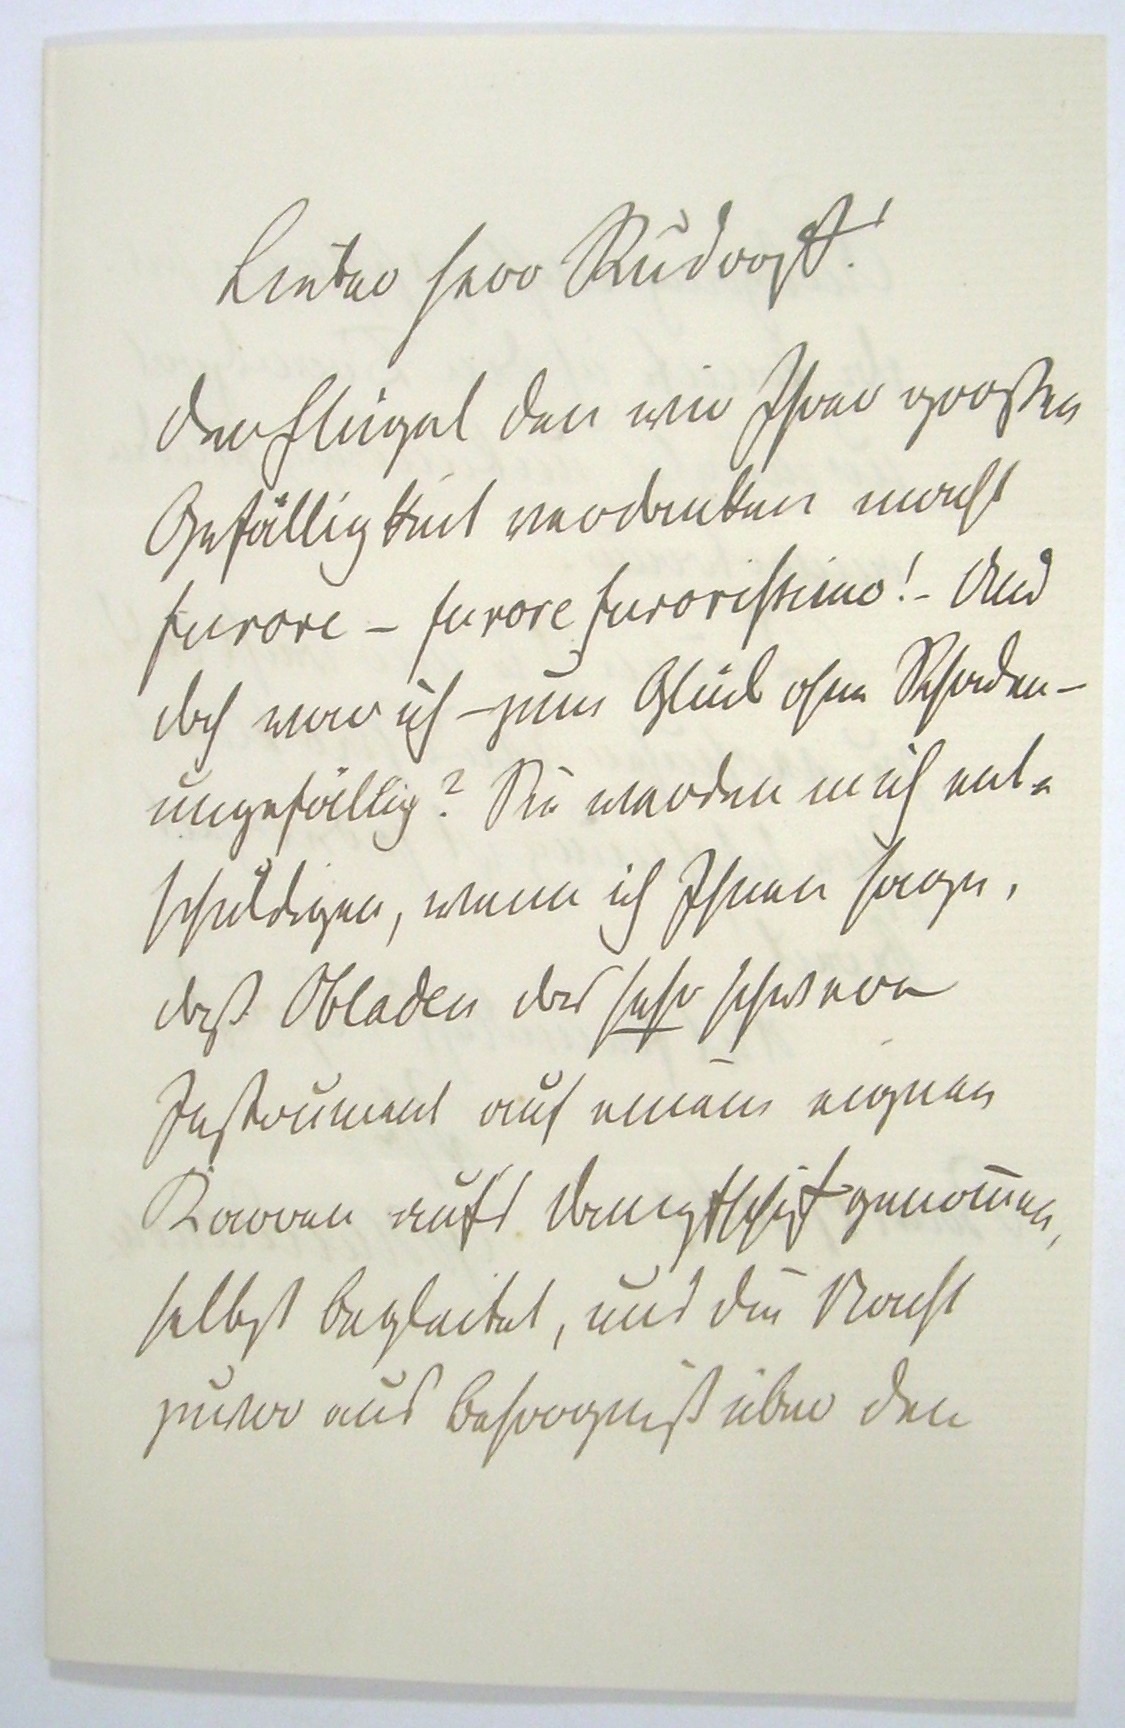 Lieber Herr Rudorff!
der Flügel den wir Ihrer großen
Gefälligkeit verdanken macht
furore – furore furorissimo! – Und
doch war ich – zum Glück ohne Schaden –
ungefällig? Sie werden mich ent-
schuldigen, wenn ich Ihnen sage,
daß Obladen das sehr schwere
Instrument auf einem eignen
Karren aufs Dampfschiff genom̄en,
selbst begleitet, und die Nacht
zuvor aus Besorgniß über den